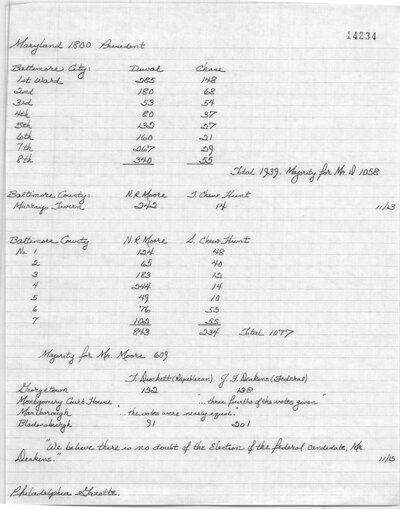 14234
Maryland 1800 President
Baltimore City: Duval Chase
1st Ward 285 148
2nd 180 68
3rd 53 54
4th 80 37
5th 132 27
6th 160 21
7th 267 29
8th 340 55
Total 1939. Majority for Mr. D 1058
Baltimore County: N.R. Moore T. Chew Hunt
Murrays Tavern 242 14 11/13
Baltimore County N.R. Moore S. Chew Hunt
No 1 124 48
2 65 40
3 183 12
4 244 14
5 49 10
6 76 55
7 102 55
843 234 Total 1077
Majority for Mr. Moore 609
T. Duckett (Republican) F. Deakins (Federal)
Georgetown 132 128
Montgomery Court House "...three fourths of the votes given"
Marlborough "...the votes were nearly equal."
Bladensburgh 91 201
"We believe there is no doubt of the Election of the federal candidate, Mr.
Deakins." 11/13
Philadelphia Gazette.